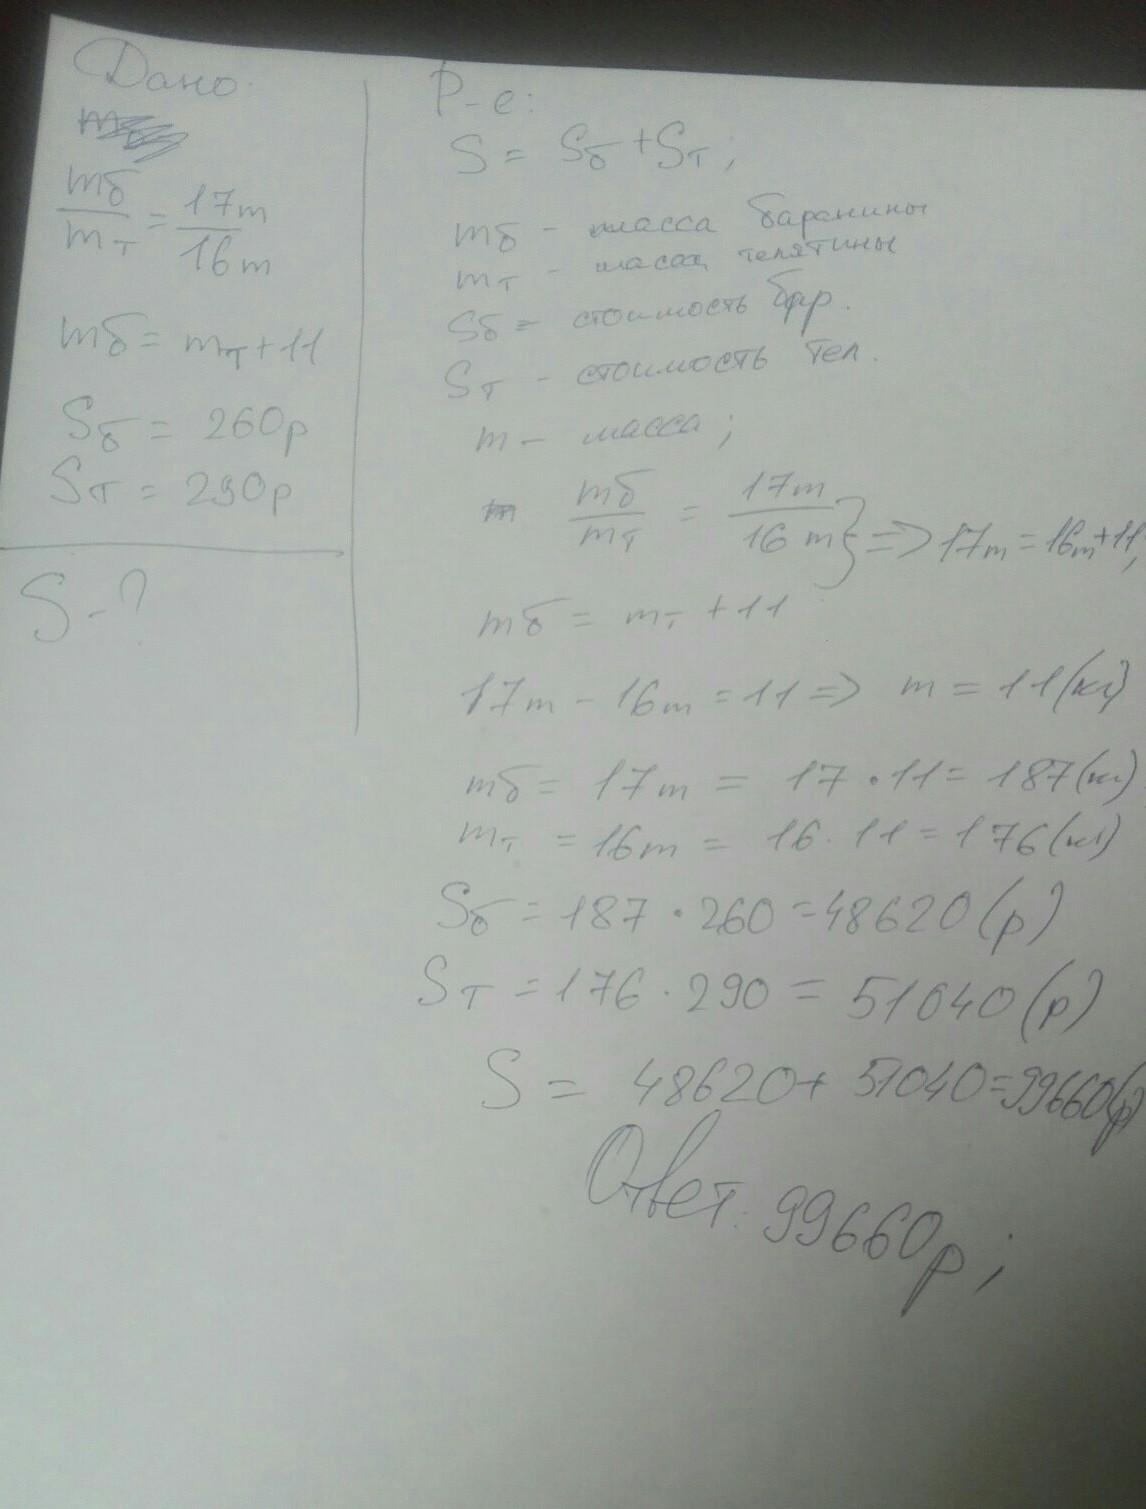 Дано:
mб/mт = 17m/16m
mб = mт + 11
Sб = 260р
Sт = 290р
S - ?
Р-е:
S = Sб + Sт ;
mб - масса баранины
mт - масса телятины
Sб = стоимость бар.
Sт - стоимость тел.
m - масса ;
mб/mт = 17m/16m } => 17m = 16m + 11;
mб = mт + 11
17m - 16m = 11 => m = 11 (кг)
mб = 17m = 17 · 11 = 187 (кг)
mт = 16m = 16 · 11 = 176 (кг)
Sб = 187 · 260 = 48620 (р)
Sт = 176 · 290 = 51040 (р)
S = 48620 + 51040 = 99660 (р)
Ответ: 99660р ;